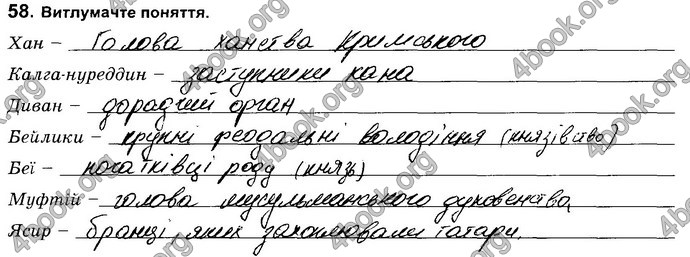 58. Витлумачте поняття.
Хан – Голова ханства Кримського
Калга-нуреддин – заступники хана
Диван – дорадчий орган
Бейлики – крупні феодальні володіння (князівство)
Беї – ногатківці роду (князь)
Муфтій – голова мусульманського духовенства
Ясир – бранці яких захоплювали татари.
4book.org